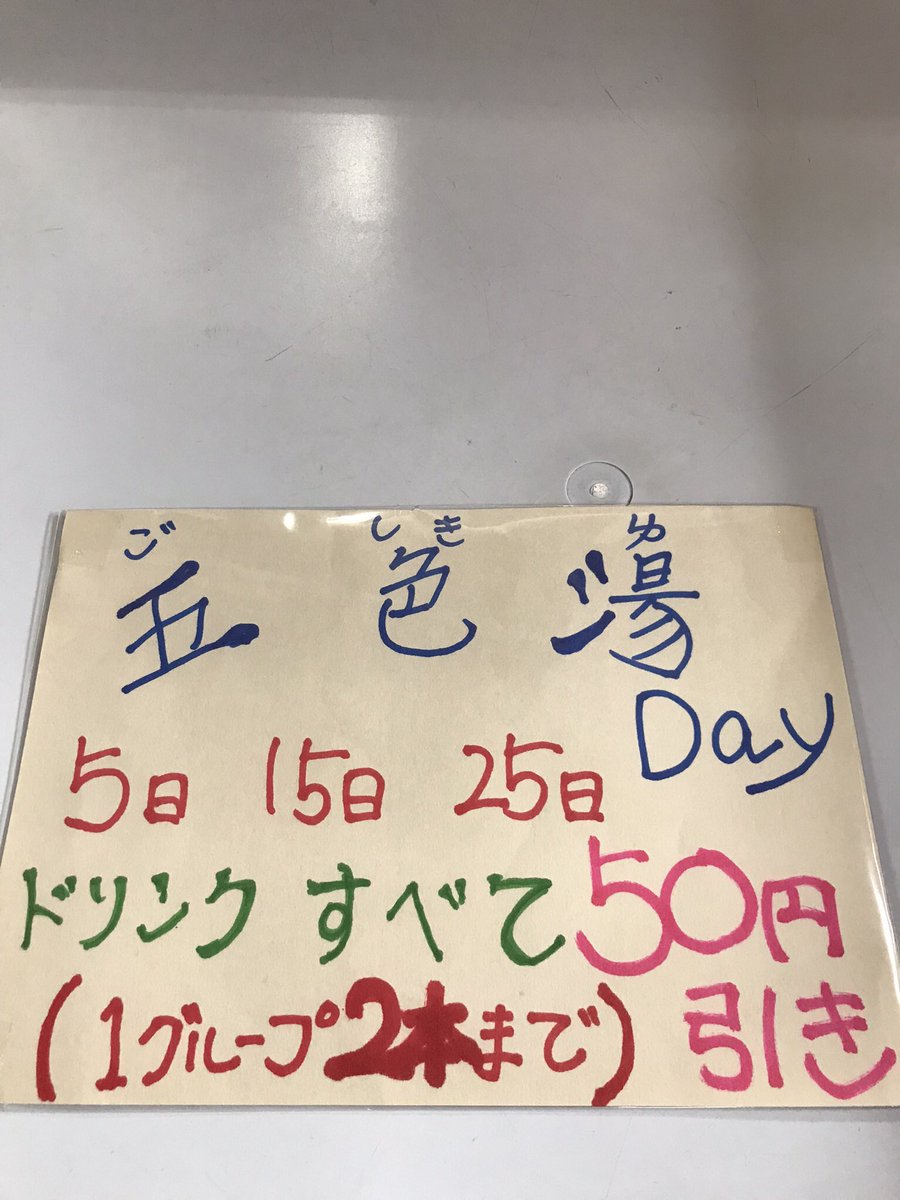 ご しき ゆ
五色湯
Day
5日 15日 25日
ドリンク すべて 50円
(1グループ2本まで) 引き